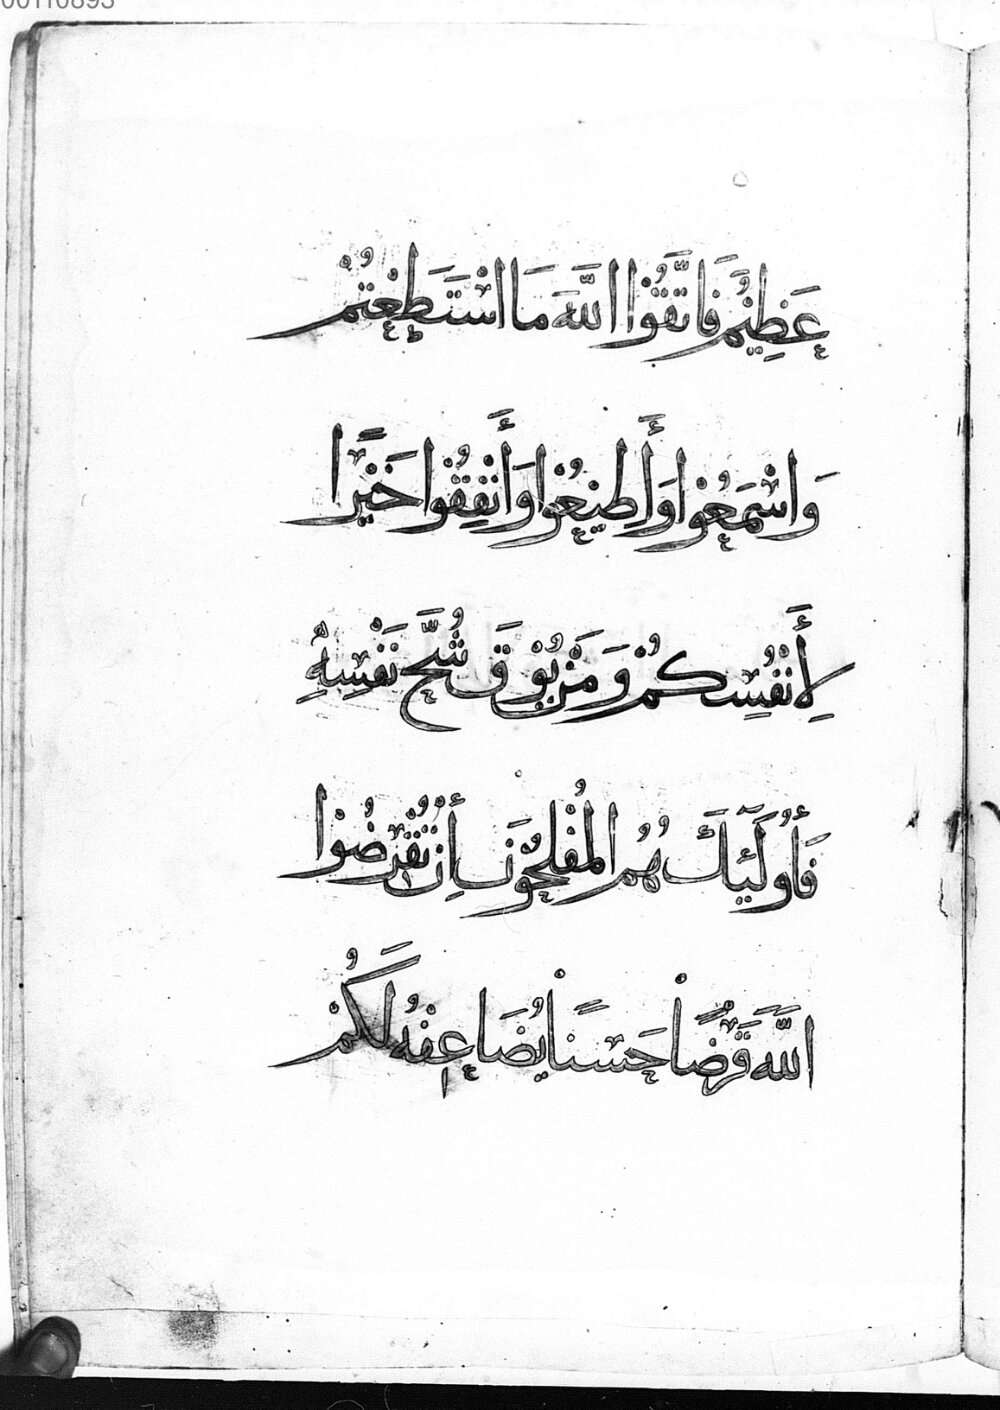 00110893
عَظِيمٌ فَاتَّقُوا اللَّهَ مَا اسْتَطَعْتُمْ
وَاسْمَعُوا وَأَطِيعُوا وَأَنْفِقُوا خَيْرًا
لِأَنْفُسِكُمْ وَمَنْ يُوقَ شُحَّ نَفْسِهِ
فَأُولَٰئِكَ هُمُ الْمُفْلِحُونَ إِنْ تُقْرِضُوا
اللَّهَ قَرْضًا حَسَنًا يُضَاعِفْهُ لَكُمْ